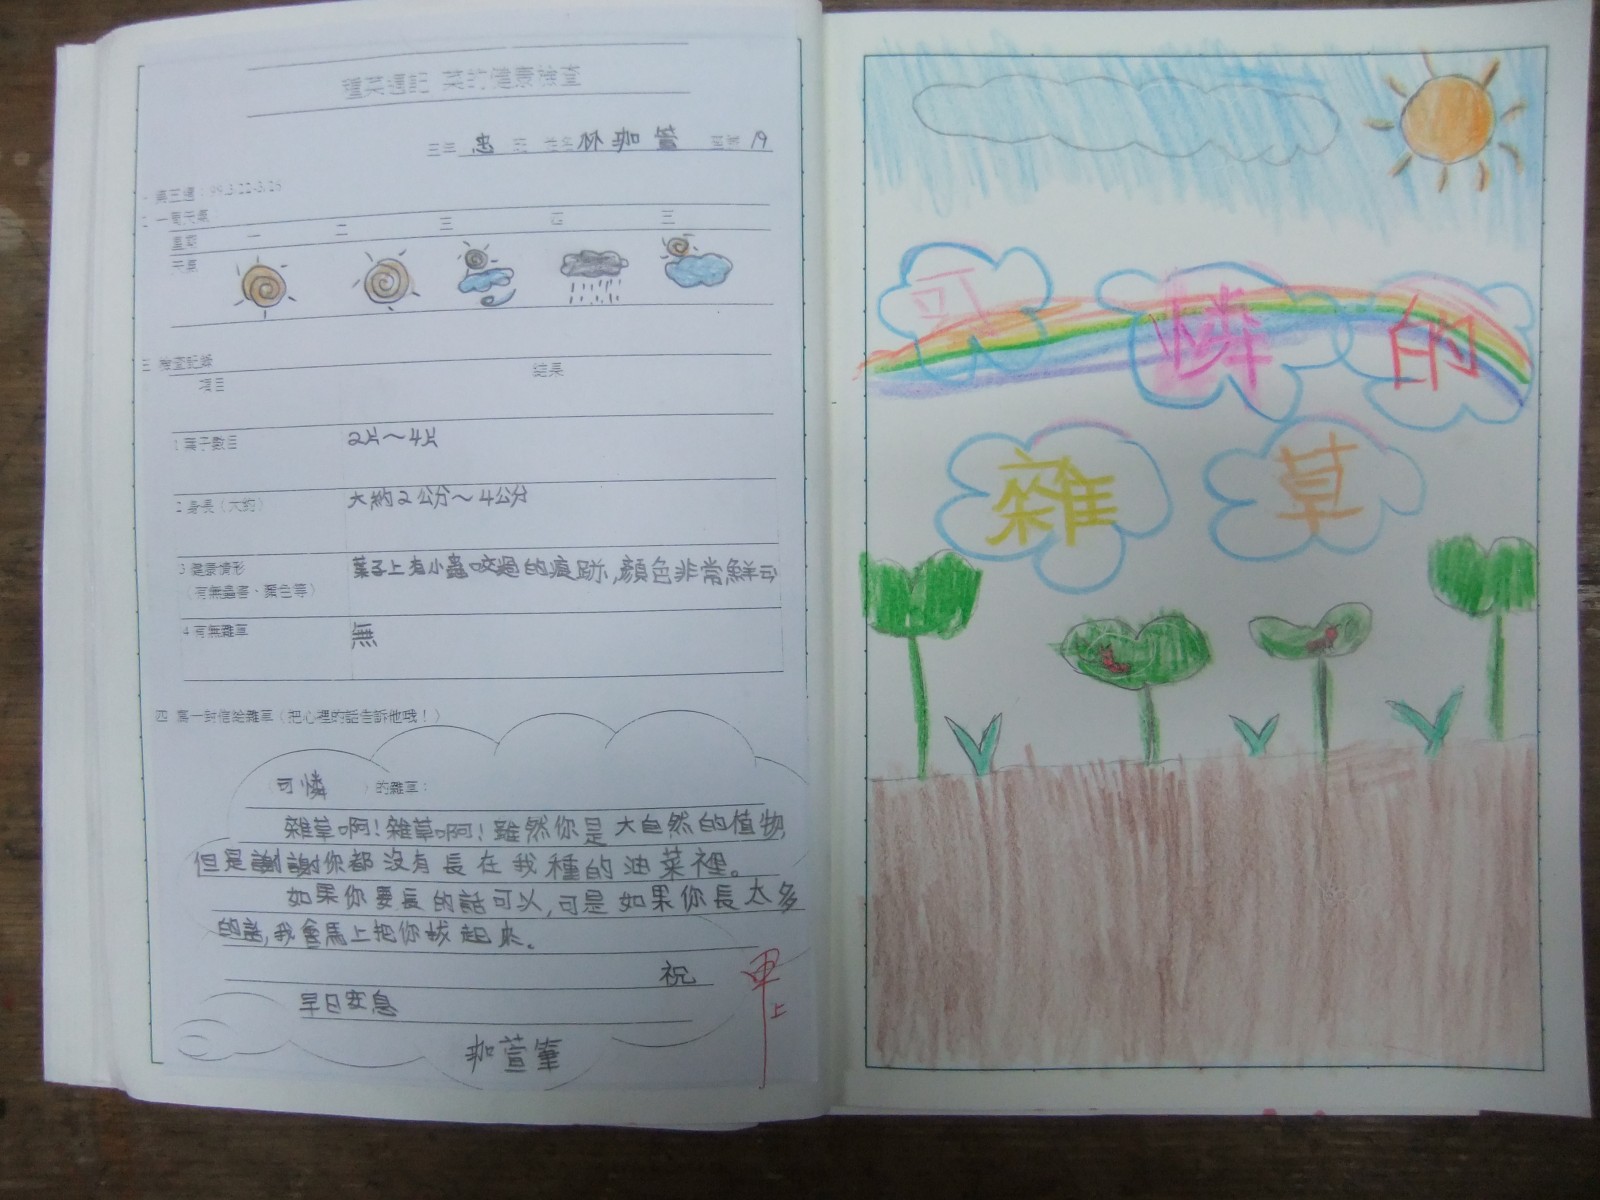 種菜週記 菜的健康檢查
三年 忠 班 姓名 林珈萱 座號 19
一 第三週：99.3.22-3.26
二 一周天氣
星期 一 二 三 四 三
天氣
三 檢查記錄
項目 結果
1 葉子數目 2片～4片
2 身長（大約） 大約2公分～4公分
3 健康情形 葉子上有小蟲咬過的痕跡,顏色非常鮮
（有無蟲害、顏色等）
4 有無雜草 無
四 寫一封信給雜草（把心裡的話告訴他哦！）
可憐 ）的雜草：
雜草啊!雜草啊!雖然你是大自然的植物
但是謝謝你都沒有長在我種的油菜裡。
如果你要長的話可以,可是如果你長太多
的話,我會馬上把你拔起來。
祝
早日安息
珈萱筆
甲上
可憐的
雜草